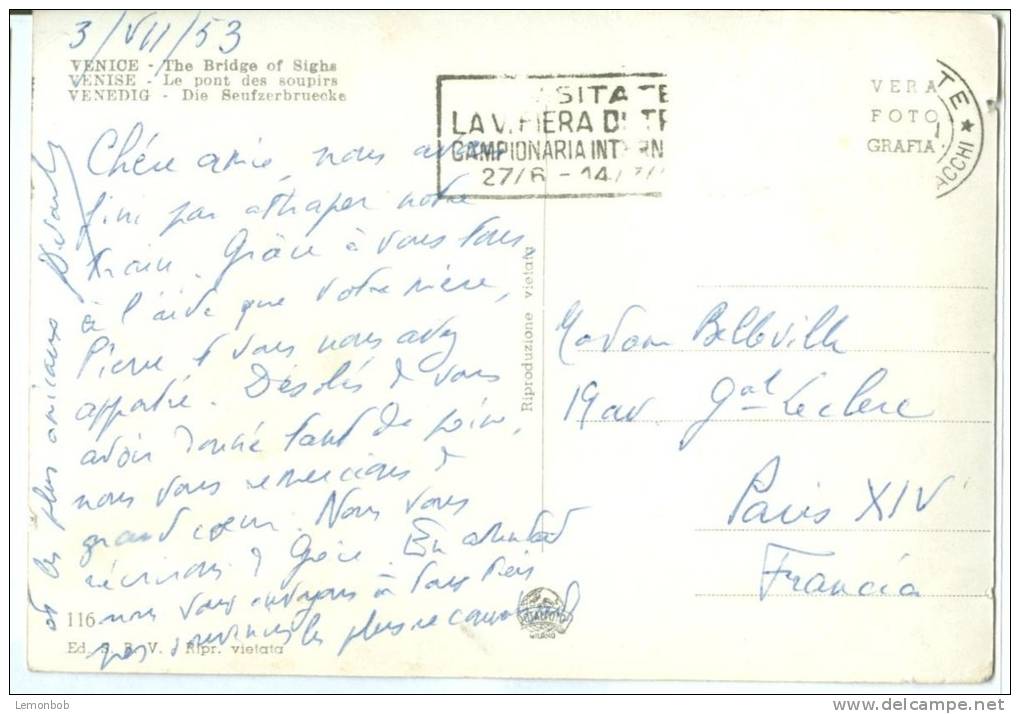 3/VII/53
VENICE - The Bridge of Sighs
VENISE - Le pont des soupirs
VENEDIG - Die Seufzerbruecke
SITATE
LA V. FIERA DI TR
CAMPIONARIA INTERN
27/6 - 14/7/
VERA
FOTO
GRAFIA
TE ★
ACCHI
Chère amie, nous avons
fini par attraper notre
train. Grâce à vous tous,
à l'aide que votre mère,
Pierre & vous nous avez
apporté. Désolés de vous
avoir donné tant de soins,
nous vous remercions de
grand cœur. Nous vous
écrirons de Grèce. En attendant
nous vous envoyons à tous
nos souvenirs les plus reconnaissants
et les plus amicaux
Riproduzione vietata
Madame Belleville
19 av Gal Leclerc
Paris XIV
Francia
116
Ed. S. B. V. - Ripr. vietata
MILANO
Lemonbob
www.delcampe.net